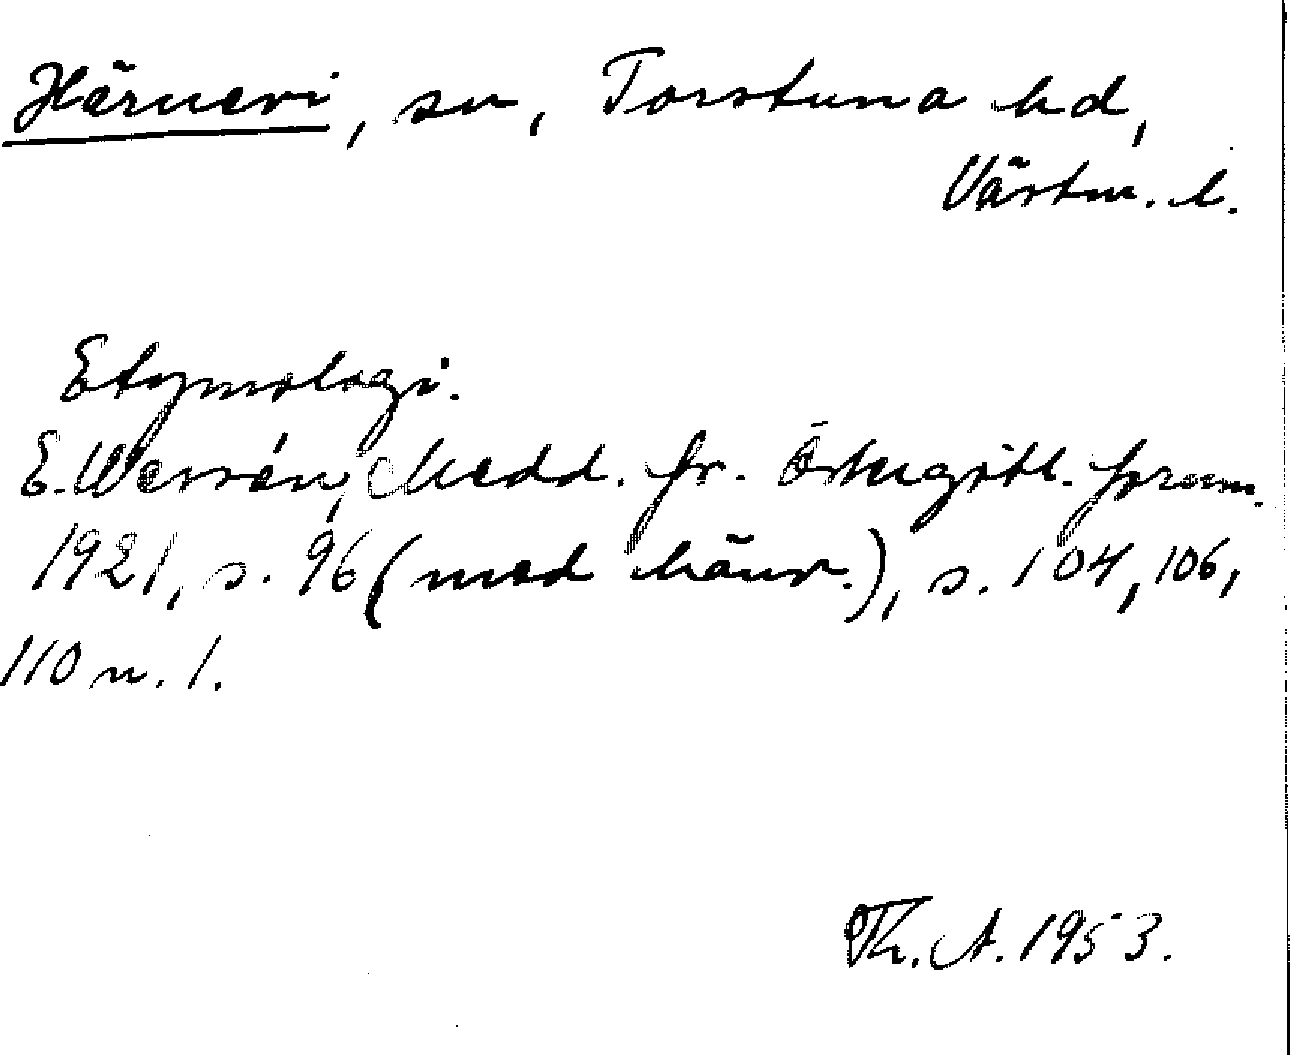 Härnevi, sn, Torstuna hd,
Västm. l.
Etymologi.
E. Wessén, Medd. fr. Östergötl. fornm.
1921, s. 96 (med hänv.), s. 104, 106,
110 n. 1.
Th. A. 1953.